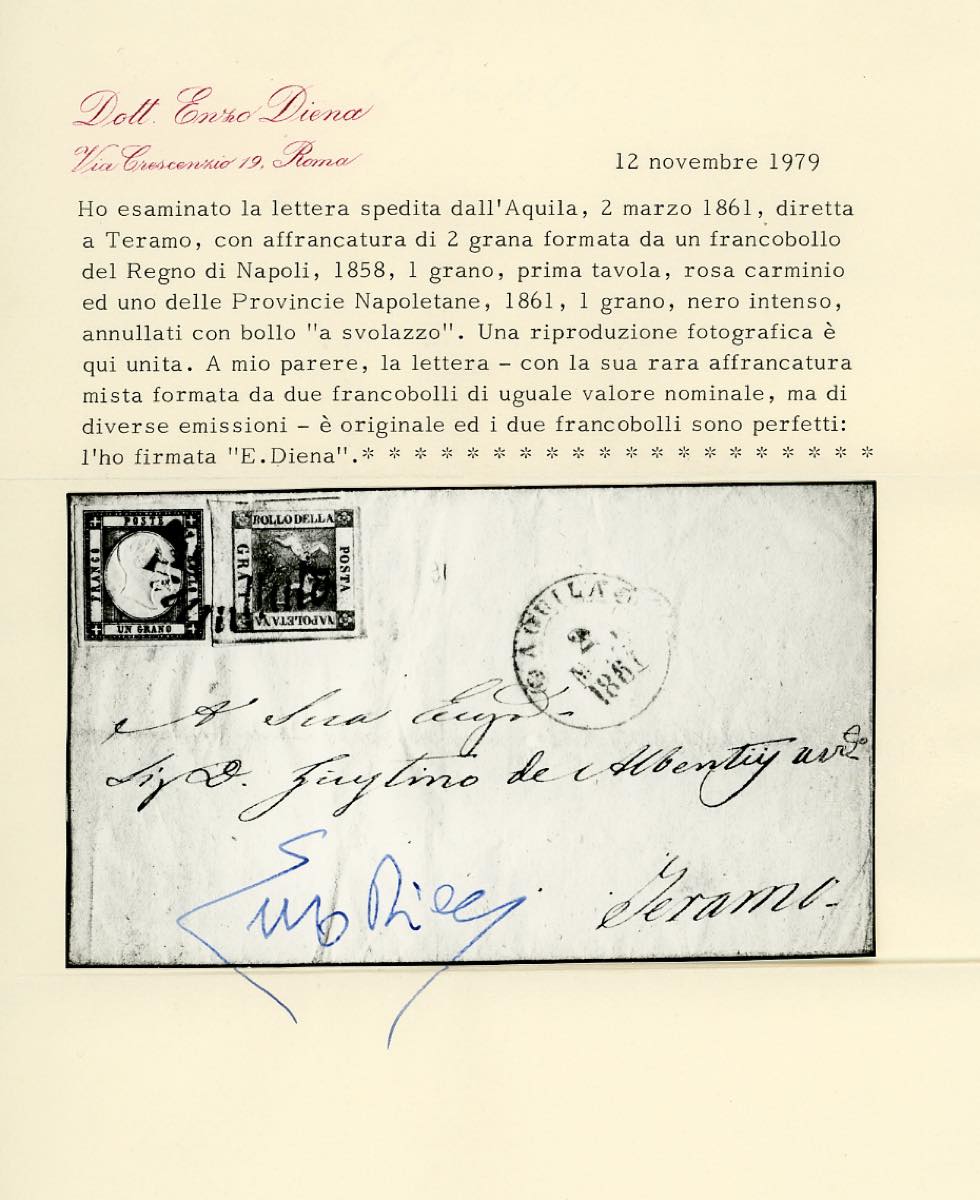 Dott. Enzo Diena
Via Crescenzio 19, Roma
12 novembre 1979
Ho esaminato la lettera spedita dall'Aquila, 2 marzo 1861, diretta
a Teramo, con affrancatura di 2 grana formata da un francobollo
del Regno di Napoli, 1858, 1 grano, prima tavola, rosa carminio
ed uno delle Provincie Napoletane, 1861, 1 grano, nero intenso,
annullati con bollo "a svolazzo". Una riproduzione fotografica è
qui unita. A mio parere, la lettera - con la sua rara affrancatura
mista formata da due francobolli di uguale valore nominale, ma di
diverse emissioni - è originale ed i due francobolli sono perfetti:
l'ho firmata "E.Diena".* * * * * * * * * * * * * * * * * * * *
POSTE
FRANCO
UN GRANO
BOLLO DELLA
POSTA
NAPOLETANA
AQUILA
2
1861
A Sua
Sig D. de
Teramo